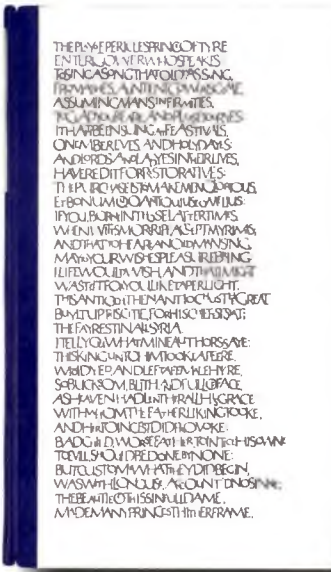 THE PLAY OF PERICLES PRINCE OF TYRE
ENTER GOWER WHO SPEAKES
TO SING A SONG THAT OLD WAS SUNG,
FROM ASHES, AUNTIENT GOWER IS COME,
ASSUMING MANS INFIRMITIES,
TO GLAD YOUR EARE, AND PLEASE YOUR EYES:
IT HATH BEEN SUNG AT FEASTIVALS,
ON EMBER EVES, AND HOLY DAYES:
AND LORDS AND LADYES IN THEIR LIVES,
HAVE RED IT FOR RESTORATIVES:
THE PURCHASE IS TO MAKE MEN GLORIOUS,
ET BONUM QUO ANTIQUIUS EO MELIUS:
IF YOU, BORNE IN THOSE LATTER TIMES,
WHEN WITS MORE RIPE, ACCEPT MY RIMES,
AND THAT TO HEARE AN OLD MAN SING,
MAY TO YOUR WISHES PLEASURE BRING:
I LIFE WOULD WISH, AND THAT I MIGHT
WASTE IT FOR YOU, LIKE TAPER LIGHT.
THIS ANTIOCH, THEN ANTIOCHUS THE GREAT
BUYLT UP THIS CITIE, FOR HIS CHIEFEST SEAT;
THE FAYREST IN ALL SYRIA.
I TELL YOU WHAT MINE AUTHORS SAYE:
THIS KING UNTO HIM TOOKE A PEERE,
WHO DYED AND LEFT A FEMALE HEYRE,
SO BUCKSOM, BLITH AND FULL OF FACE,
AS HEAVEN HAD LENT HER ALL HIS GRACE
WITH WHOM THE FATHER LIKING TOOKE,
AND HER TO INCEST DID PROVOKE:
BAD CHILD, WORSE FATHER, TO INTICE HIS OWNE
TO EVILL, SHOULD BE DONE BY NONE:
BUT CUSTOM WHAT THEY DID BEGIN,
WAS WITH LONG USE, ACCOUNTD NO SINNE;
THE BEAUTIE OF THIS SINFULL DAME,
MADE MANY PRINCES THITHER FRAME,